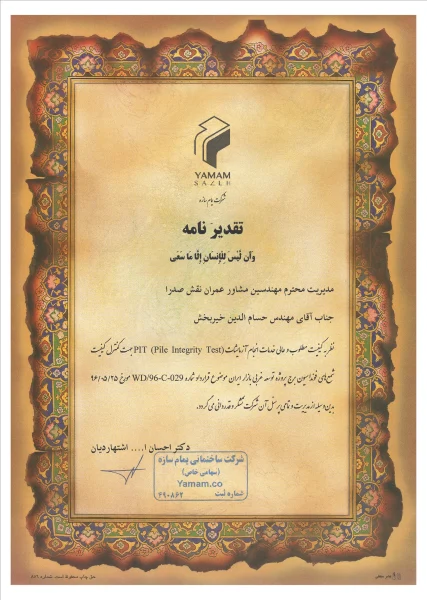 YAMAM
SAZEH
شرکت یمام سازه
تقدیر نامه
وَاَن لَیْسَ لِلْاِنْسَانِ اِلَّا مَا سَعَی
مدیریت محترم مهندسین مشاور عمران نقش صدرا
جناب آقای مهندس حسام الدین خیربخش
نظر به کیفیت مطلوب و عالی خدمات انجام آزمایشات PIT (Pile Integrity Test) جهت کنترل کیفیت
شمع‌های فونداسیون برج پروژه توسعه غربی بازار ایران موضوع قرارداد شماره WD/96-C-029 مورخ ۹۶/۰۵/۲۵
بدین وسیله از مدیریت و تمامی پرسنل آن شرکت تشکر و قدردانی می گردد.
دکتر احسان ا.... اشتهاردیان
شرکت ساختمانی یمام سازه
(سهامی خاص)
Yamam.co
شماره ثبت
۴۹۰۸۶۲
حق چاپ محفوظ است. شماره ۸۷۶